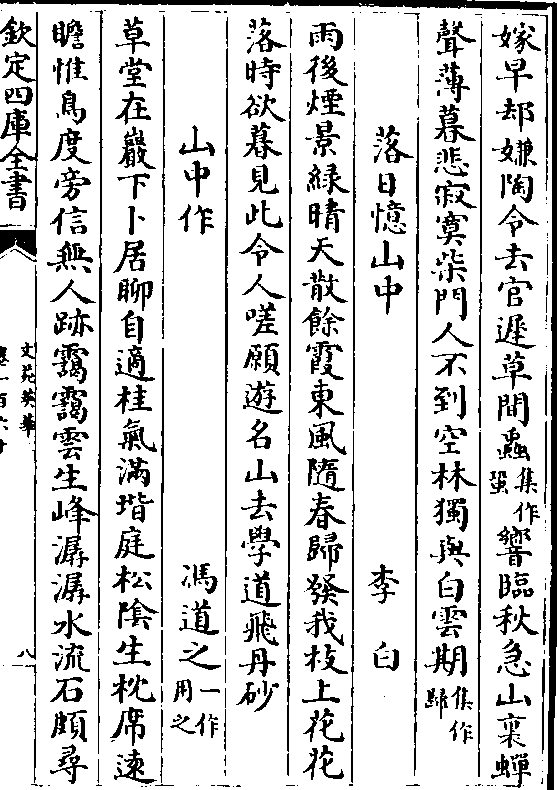 嫁早却嫌陶令去官遲草間蟲集作蛩響臨秋急山裏蟬
聲薄暮悲寂寞柴門人不到空林獨與白雲期集作歸
落日憶山中　李白
雨後煙景緑晴天散餘霞東風隨春歸發我枝上花花
落時欲暮見此令人嗟願遊名山去學道飛丹砂
山中作　馮道之一作用之
草堂在巖下卜居聊自適桂氣滿堦庭松陰生枕席逺
瞻惟鳥度旁信無人跡靄靄雲生峰潺潺水流石頗尋
欽定四庫全書
文苑英華
八